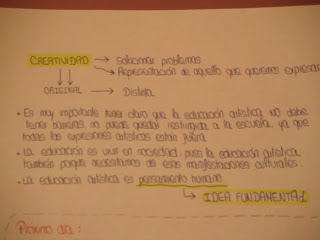 CREATIVIDAD → Solucionar problemas
→ Representación de aquello que queremos expresar
ORIGINAL → Distinta
• Es muy importante tener claro que la educación artística no debe
tener barreras, no puede quedar restringida a la escuela, ya que
todas las expresiones artísticas están fuera.
• La educación es vivir en sociedad, pues la educación artística
también porque necesitamos de esas manifestaciones culturales.
• La educación artística es pensamiento humano
→ IDEA FUNDAMENTAL
Próximo día: